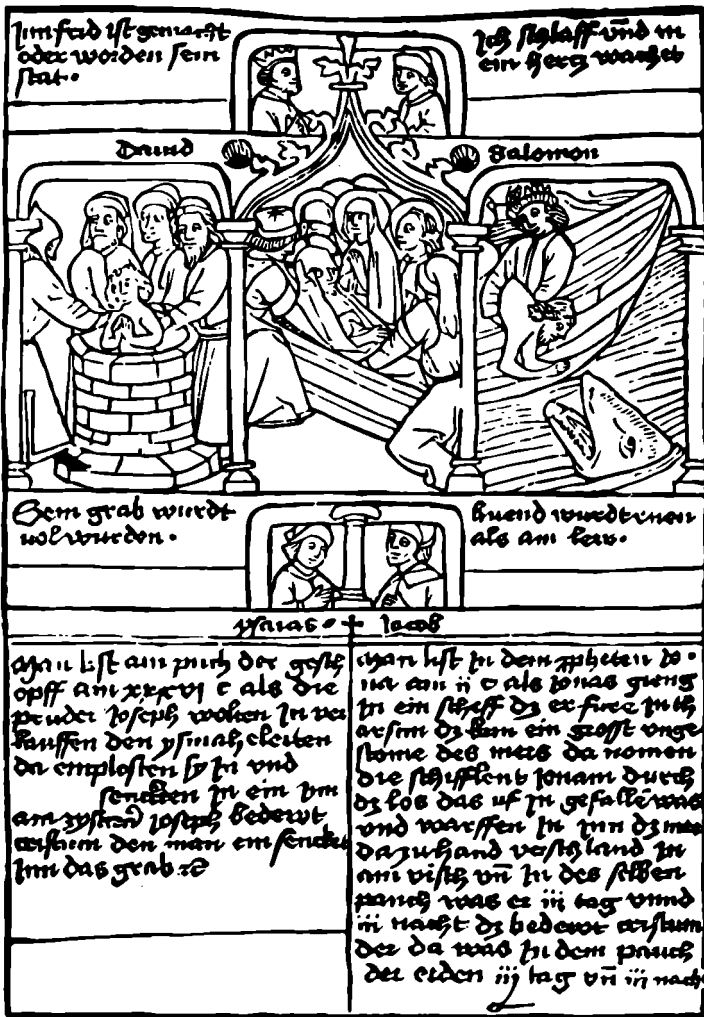 Im frid ist gemacht
oder worden sein
stat.
Ich schlaff vnnd m
ein hertz wachet
Dauid
Salomon
Sein grab wurdt
vol wurden.
als am lew.
ysaias.
Iacob
Man list am puch der gesch
opff am xxxvi c als die
pruder ioseph wolten In ver
kauffen den ysmaheleiten
da emplosten sy In vnd
senckten In ein
am zystern ioseph bedewt
cristum den man ein sencket
Inn das grab
Man list In dem ppheten io
na am ii c als ionas gieng
In ein scheff dz er fure In th
arsum dz kam ein grosst vnge
stome des mers da nomen
die schifflent ionam durch
dz los das uf In gefallē was
vnd warffen In inn dz mer
da zuhand verschland In
am visch vn̄ In des selben
pauch was er iii tag vnnd
iii nacht dz bedewt cristum
der da was In dem pauch
der erden iij tag vn̄ iii nacht